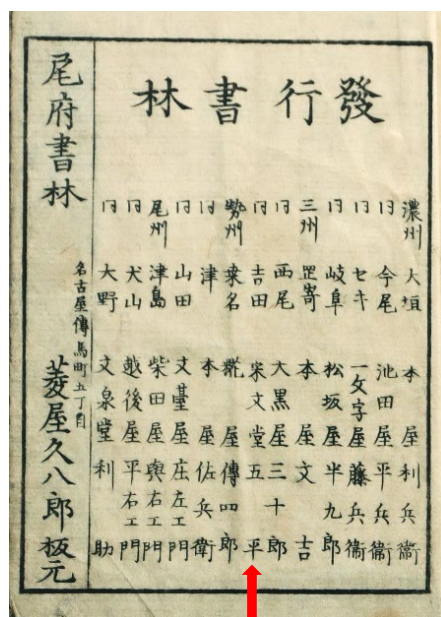 發行書林
濃州 大垣 本屋利兵衞
同 今尾 池田屋平兵衞
同 セキ 一文字屋藤兵衞
同 岐阜 松坂屋半九郎
三州 罡嵜 本屋文吉
同 西尾 大黒屋三十郎
同 吉田 宋文堂五平
勢州 桑名 屋傳四郎
同 津 本屋佐兵衛
同 山田 文臺屋庄左エ門
尾州 津島 柴田屋與右エ門
同 犬山 越後屋平右エ門
同 大野 文泉堂利助
尾府書林
名古屋傳馬町五丁目
菱屋久八郎板元